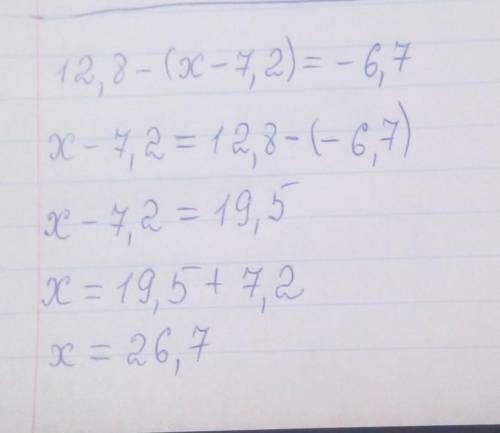 12,8-(x-7,2)=-6,7
x-7,2=12,8-(-6,7)
x-7,2=19,5
x=19,5+7,2
x=26,7